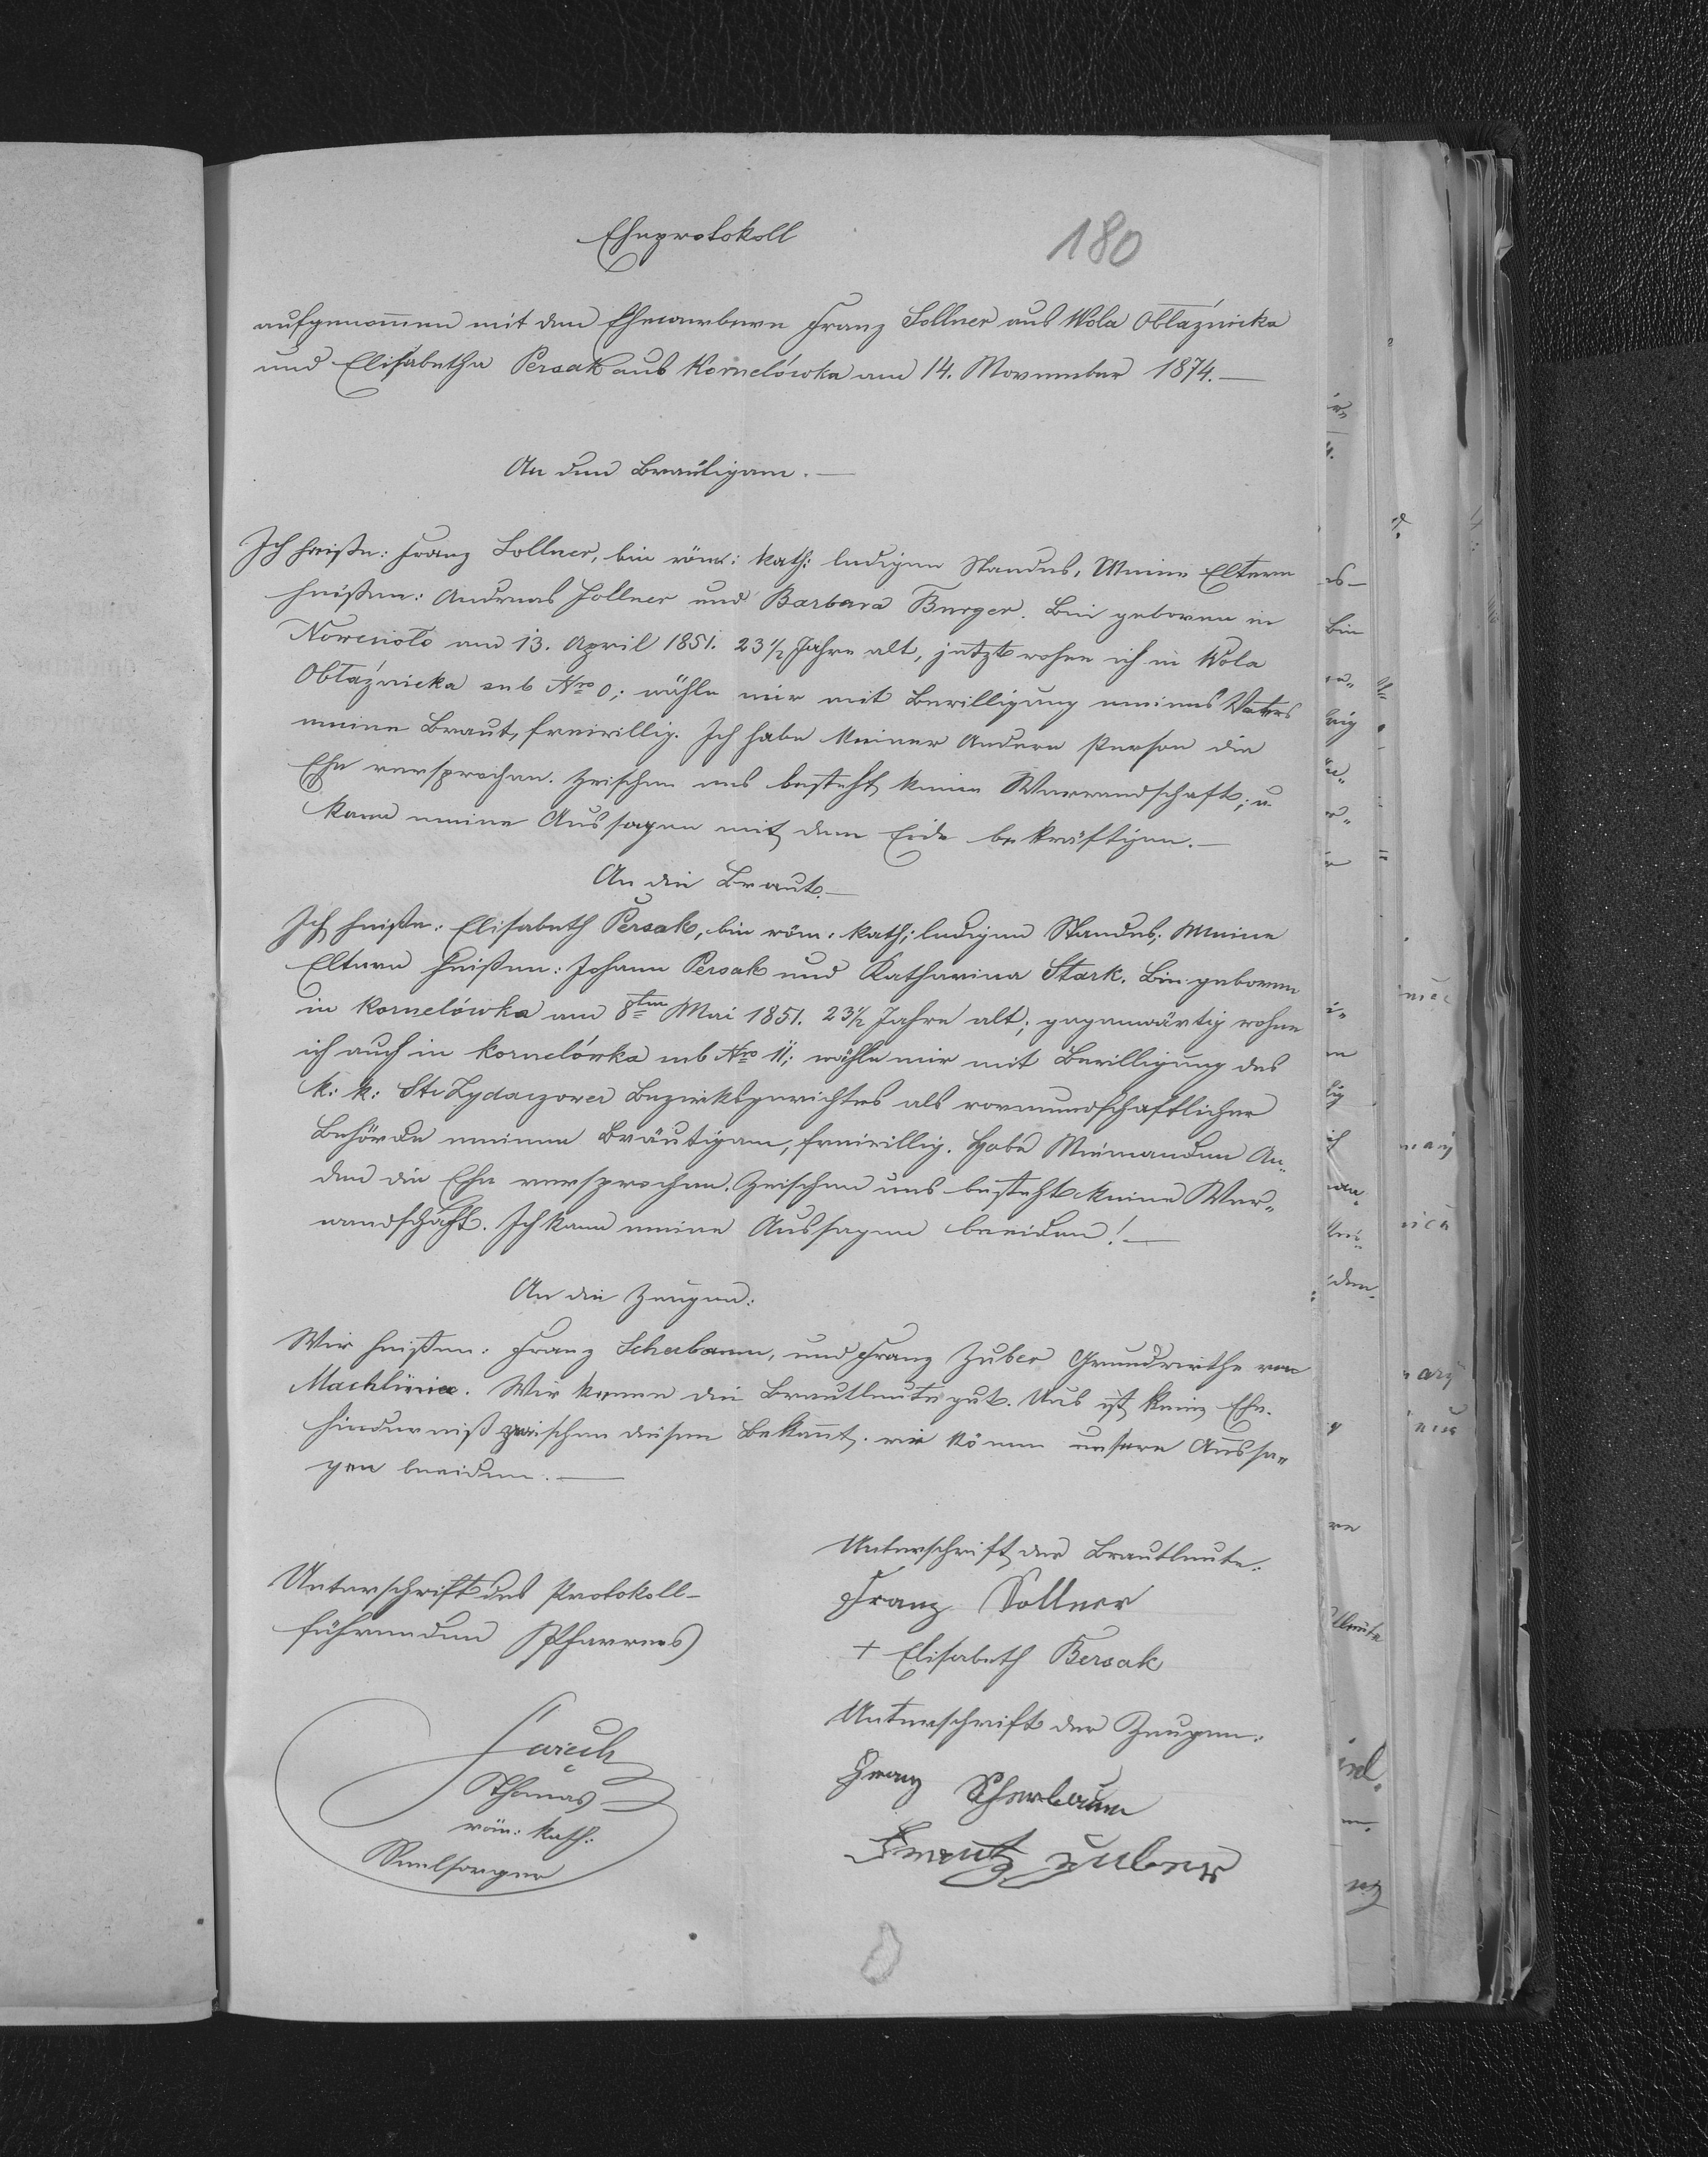 Eheprotokoll
180
aufgenommen mit den Ehewerbern Franz Sollner aus Wola Obłáznicka
und Elisabetha Persak aus Kornelówka am 14. November 1874.—
An den Bräutigam.—
Ich heiße: Franz Sollner, bin röm: kath: ledigen Standes, Meine Eltern
heißen: Andreas Sollner und Barbara Burger. Bin geboren in
am 13. April 1851. 23 1/2 Jahre alt, jetzt wohne ich in Wola
Obłáznicka sub Nro 0; wähle mir mit Bewilligung meines Vaters
meine Braut, freiwillig. Ich habe keiner Andern Person die
Ehe versprochen. Zwischen uns besteht keine Verwandschaft; u.
kann meine Aussagen mit dem Eide bekräftigen.—
An die Braut.—
Ich heiße: Elisabeth Persak, bin röm: kath: ledigen Standes; Meine
Eltern heißen: Johann Persak und Katharina Stark. Bin geboren
in Kornelówka am 8ten Mai 1851. 23 1/2 Jahre alt; gegenwärtig wohne
ich auch in Kornelówka sub Nro 11; wähle mir mit Bewilligung des
k: k: Zydaczower Bezirksgerichtes als vormundschaftlicher
Behörde meinen Bräutigam, freiwillig. Habe Niemanden An„
dern die Ehe versprochen. Zwischen uns besteht keine Ver„
wandschaft. Ich kann meine Aussagen beeiden!—
An die Zeugen:
Wir heißen: Franz Scherbaum, und Franz Zuber Grundwirthe von
Machliniec. Wir kennen die Brautleute gut. Uns ist kein Ehe-
hinderniß zwischen diesen Bekannt. wir können unsere Aussa„
gen beeiden.—
Unterschrift der Brautleute:
Franz Sollner
+ Elisabeth Bersak
Unterschrift der Zeugen:
Franz Scherbaum
Frantz Zuber
Unterschrift des Protokoll-
führenden Pfarrers
Thomas
röm: kath:
Seelsorger